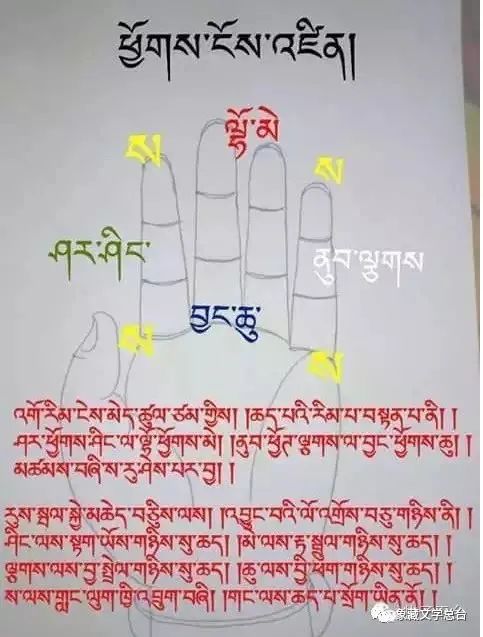 ཕྱོགས་ངོས་འཛིན།
ལྷོ་མེ
ས
ས
ཤར་ཤིང་
ནུབ་ལྕགས
བྱང་ཆུ་
ས
ས
འགོ་རིམ་ངེས་མེད་ཚུལ་ཙམ་གྱིས། །ཆད་པའི་རིམ་པ་བསྟན་པ་ནི། །
ཤར་ཕྱོགས་ཤིང་ལ་ལྷོ་ཕྱོགས་མེ། །ནུབ་ཕྱོཊ་ལྕགས་ལ་བྱང་ཕྱོགས་ཆུ། །
མཚམས་བཞི་ས་རུ་ཤེས་པར་བྱ། །
རུས་སྦལ་སྐྱེ་མཆེད་བཅིུས་ལས། །འབྱུང་བའི་ལོ་འགྲོས་བཅུ་གཉིས་ནི། །
ཤིང་ལས་སྟག་ཡོས་གཉིས་སུ་ཆད། །མེ་ལས་རྟ་སྦྲུལ་གཉིས་སུ་ཆད། །
ལྕགས་ལས་བྱ་སྤྲེལ་གཉིས་སུ་ཆད། །ཆུ་ལས་བྱི་ཕག་གཉིས་སུ་ཆད། །
ས་ལས་གླང་ལུག་ཁྱི་འབྲུག་བཞི། །གང་ལས་ཆད་པ་སྲོག་ཡིན་ནོ། །
象藏文学总台